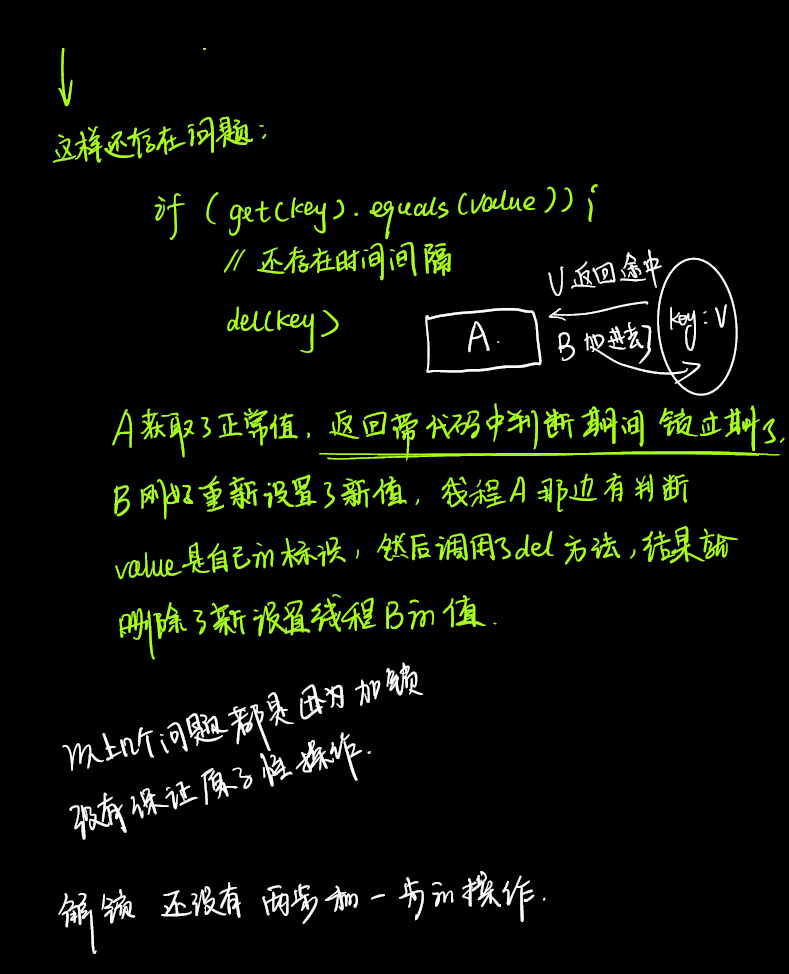 这样还存在问题：
if (get(key).equals(value)) {
// 还存在时间间隔
del(key)
V 返回途中
A.
key: V
B 加进去了
A获取了正常值，返回带代码中判断期间 锁过期了.
B刚好重新设置了新值，线程A那边有判断
value是自己的标识，然后调用了del方法，结果就
删除了新设置线程B的值.
以上几个问题都是因为加锁
没有保证原子性操作.
解锁 还没有 两步和一步的操作.